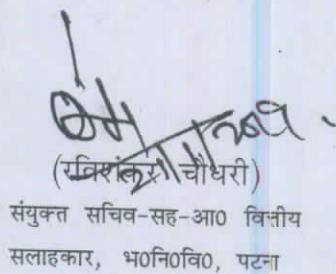 (रविशंकर चौधरी)
संयुक्त सचिव-सह-आ0 वित्तीय
सलाहकार, भ0नि0वि0, पटना